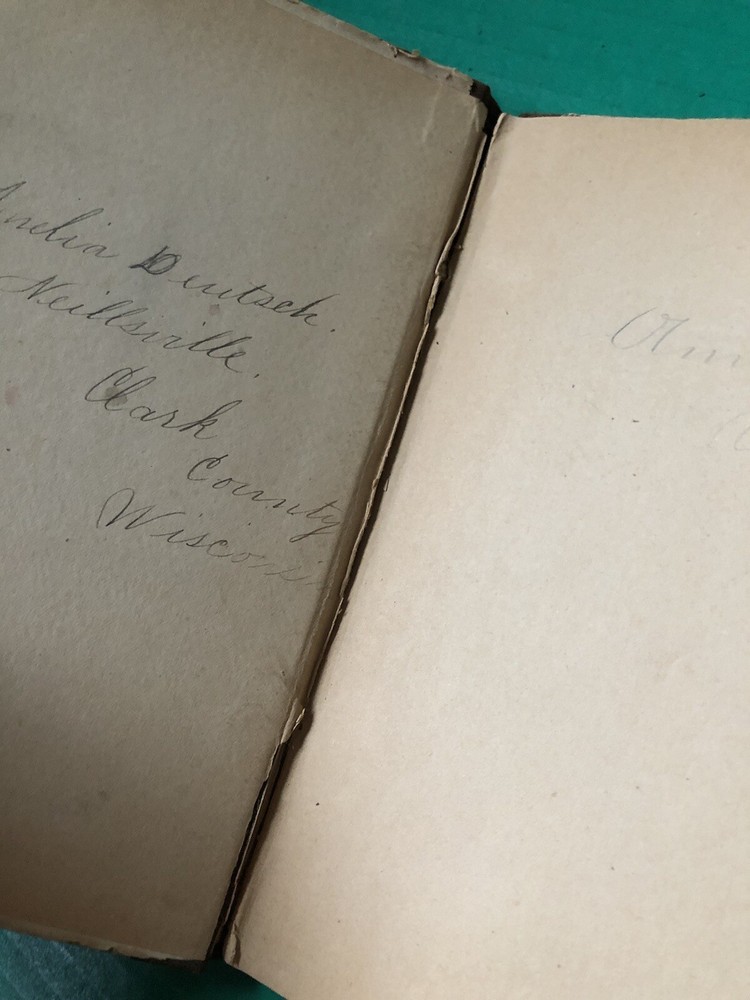 Amelia Deutsch.
Neillsville.
Clark
County
Wisconsin
Am